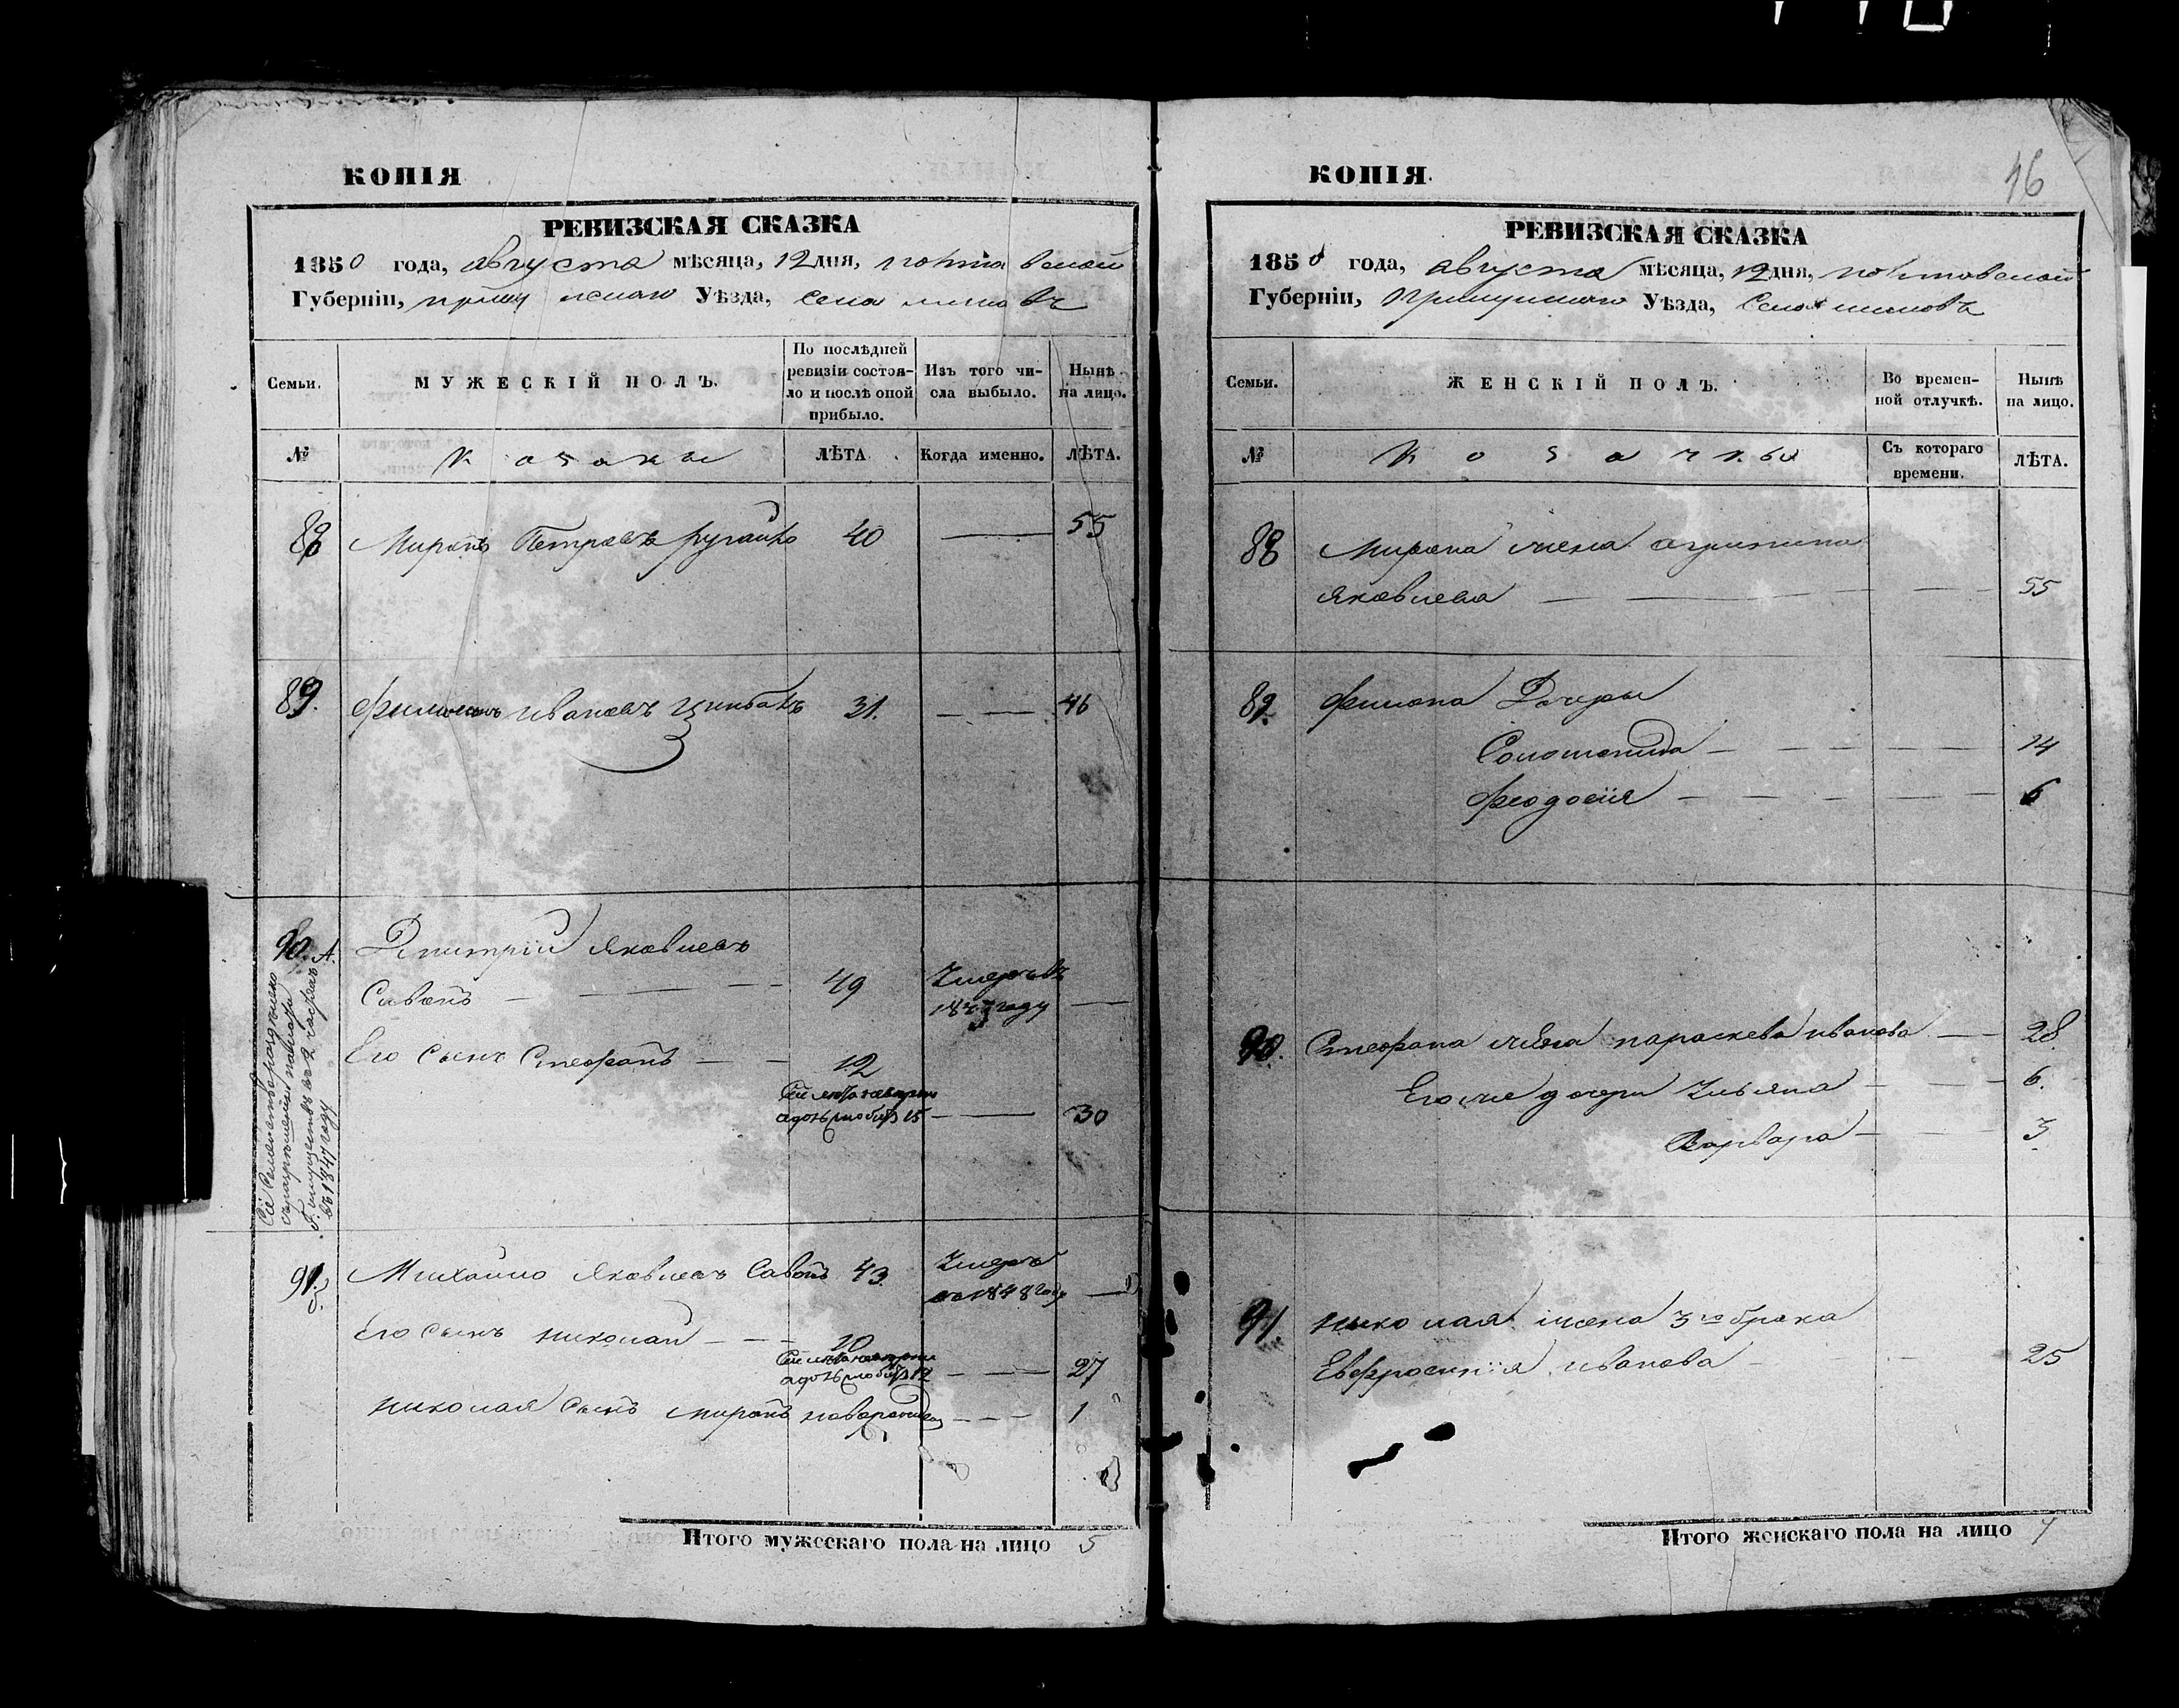 КОПІЯ
РЕВИЗСКАЯ СКАЗКА
1850 года, августа мѣсяца, 12 дня, полтавской
Губерніи, Уѣзда, села
Семьи.
МУЖЕСКІЙ ПОЛЪ.
По послѣдней ревизіи состояло и послѣ оной прибыло.
Изъ того числа выбыло.
Нынѣ на лицо.
№
Козаки
ЛѢТА.
Когда именно.
ЛѢТА.
88 Миронъ Петровъ 40 — 55
89. Филимонъ Ивановъ 31. — — 46
90. А. Дмитрій Яковлевъ
Савонъ — — — 49 Умеръ въ
1847 году —
Его сынъ Стефанъ — — 12
15 — 30
Сіе Семейство раздѣлено
съ разрѣшенія палаты
Г. имуществъ въ
въ 1847 году
91. Михайло Яковлевъ Савонъ 43. Умеръ
въ 1848 году —
Его сынъ Николай — — 10
12 — — 27
Николая сынъ Миронъ новорожден — — 1
Итого мужескаго пола на лицо 5
КОПІЯ.
16
РЕВИЗСКАЯ СКАЗКА
1850 года, августа мѣсяца, 12 дня, полтавской
Губерніи, Уѣзда, Села
Семьи.
ЖЕНСКІЙ ПОЛЪ.
Во временной отлучкѣ.
Нынѣ на лицо.
№
Козачьяго
Съ котораго времени.
ЛѢТА.
88 Мирона жена
Яковлева — — — 55
89. Филимона Дочери
Соломонида — — — 14
Феодосія — — — 6
90. Стефана жена параскева иванова — 28
Его же дочери Ульяна — — 6.
Варвара — — 3
91. Николая жена 3го брака
Евфросинія иванова — 25
Итого женскаго пола на лицо 7